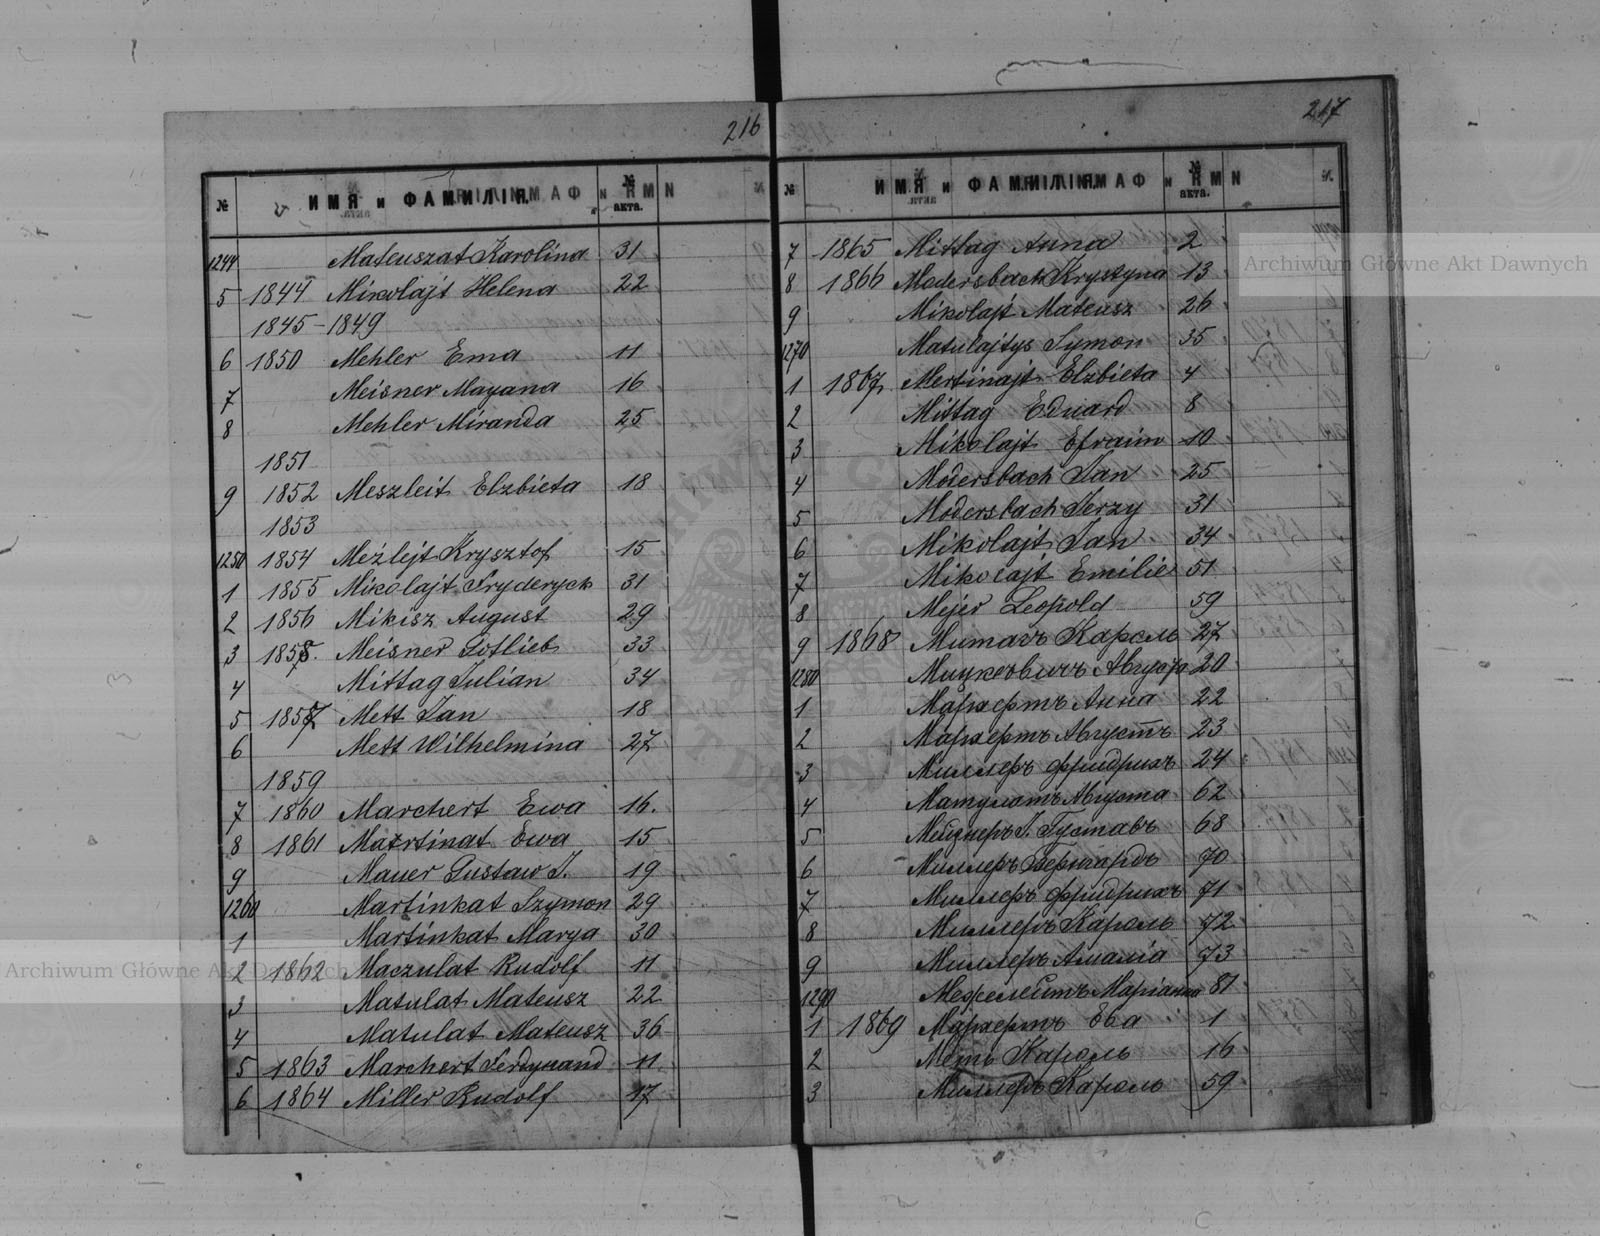 216
№ ИМЯ и ФАМИЛІЯ. № акта.
1244 Mateuszat Karolina 31
5 1844 Mikolajt Helena 22
1845-1849
6 1850 Mehler Ema 11
7 Meisner Mayana 16
8 Mehler Miranda 25
1851
9 1852 Meszleit Elzbieta 18
1853
1250 1854 Meźlejt Krysztof 15
1 1855 Mikolajt Fryderyck 31
2 1856 Mikisz August 29
3 Meisner Gotlieb 33
4 Mittag Julian 34
5 1857 Mett Jan 18
6 Mett Wilhelmina 27
1859
7 1860 Marchert Ewa 16.
8 1861 Matrtinat Ewa 15
9 Mauer Gustaw J. 19
1260 Martinkat Szymon 29
1 Martinkat Marya 30
2 1862 Maczulat Rudolf 11
3 Matulat Mateusz 22
4 Matulat Mateusz 36
5 1863 Marchert Ferdynand 11.
6 1864 Miller Rudolf 17
217
№ ИМЯ и ФАМИЛІЯ № акта.
7 1865 Mittag Anna 2
8 1866 Modersbach Krystyna 13
9 Mikolajt Mateusz 26
1270 Matulajtys Symon 35
1 1867 Mertinajt Elzbieta 4
2 Mittag Eduard 8
3 Mikolajt Efraim 10
4 Modersbach Jan 25
5 Modersbach Jerzy 31
6 Mikolajt Jan 34
7 Mikolajt Emilie 51
8 Mejer Leopold 59
9 1868 Митагъ Кароль 27
1280 Мицкевичъ Августа 20
1 Мархертъ Анна 22
2 Мархертъ Августъ 23
3 Миллеръ Фридрихъ 24
4 Матулатъ Августа 62
5 Мейзнеръ І. Густавъ 68
6 Миллеръ Бернгардъ 70
7 Миллеръ Фридрихъ 71
8 Миллеръ Кароль 72
9 Миллеръ Амалія 73
1290 Межлейтъ Маріанна 81
1 1869 Мархертъ Ева 1
2 Метъ Кароль 16
3 Миллеръ Кароль 59
Archiwum Główne Akt Dawnych
Archiwum Główne Akt Dawnych